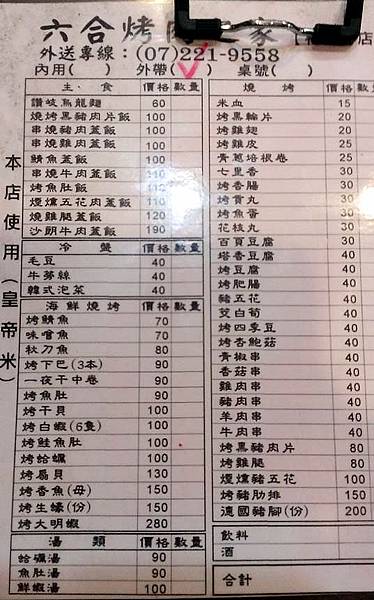 六合烤肉之家
外送專線：(07)221-9558
內用(  )  外帶(✓)  桌號(  )
本店使用（皇帝米）
主．食 價格 數量
讚岐烏龍麵 60
燒烤黑豬肉片飯 100
串燒豬肉蓋飯 100
串燒雞肉蓋飯 100
鯖魚蓋飯
串燒牛肉蓋飯 110
烤魚肚飯 110
煙燻五花肉蓋飯 110
燒雞腿蓋飯 120
沙朗牛肉蓋飯 190
冷 盤 價格 數量
毛豆 40
牛蒡絲 40
韓式泡菜 40
海鮮燒烤 價格 數量
烤鯖魚 70
味噌魚 70
秋刀魚 80
烤下巴(3本) 90
一夜干中卷 90
烤魚肚 90
烤干貝 100
烤白蝦(6隻) 100
烤鮭魚肚 100
烤蛤蠣 100
烤扇貝 130
烤香魚(母) 150
烤生蠔(份) 150
烤大明蝦 280
湯 類 價格 數量
蛤蠣湯 90
魚肚湯 90
鮮蝦湯 100
燒 烤 價格
米血 15
烤黑輪片 20
烤雞翅 20
烤雞皮 25
青蔥培根卷 25
七里香 30
烤香腸 30
烤貢丸 30
烤魚蛋 30
花枝丸 30
百頁豆腐 30
塔香豆腐 30
烤豆腐 30
烤肥腸 30
豬五花 40
茭白筍 40
烤四季豆 40
烤杏鮑菇 40
青椒串 40
香菇串 40
雞肉串 40
豬肉串 40
羊肉串 40
牛肉串 40
烤黑豬肉片 80
烤雞腿 80
煙燻豬五花 100
烤豬肋排 150
德國豬腳(份) 200
飲料
酒
合計